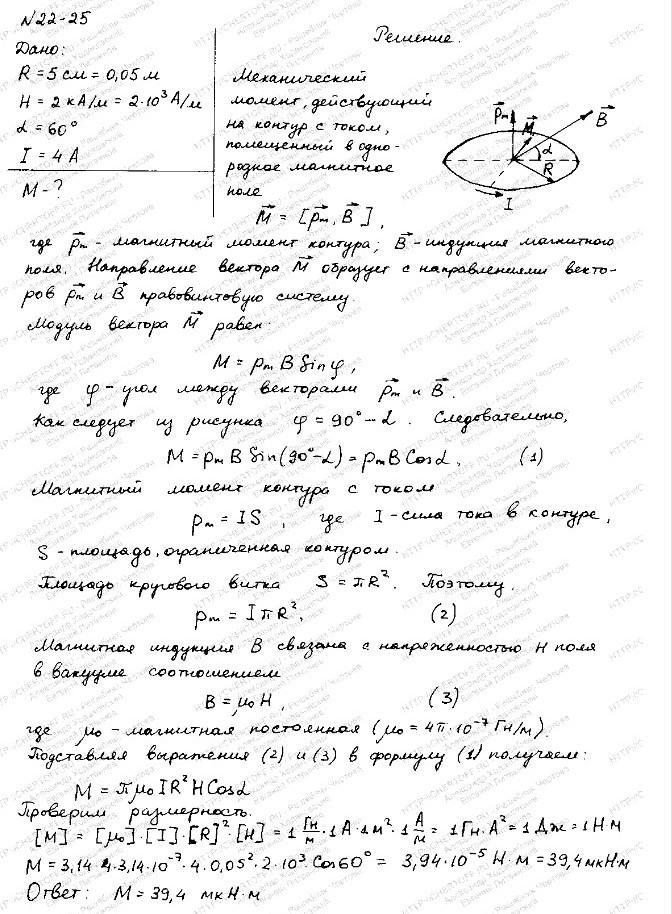 N22-25
Дано:
R = 5 см = 0,05 м
H = 2 кА/м = 2·10³ А/м
α = 60°
I = 4 А
M - ?
Решение.
Механический
момент, действующий
на контур с током,
помещенный в одно-
родное магнитное
поле
p⃗m M⃗ B⃗ α R I
M⃗ = [p⃗m, B⃗],
где p⃗m - магнитный момент контура; B⃗ - индукция магнитного
поля. Направление вектора M⃗ образует с направлениями векто-
ров p⃗m и B⃗ правовинтовую систему.
Модуль вектора M⃗ равен:
M = pm B Sin φ,
где φ - угол между векторами p⃗m и B⃗.
Как следует из рисунка φ = 90° - α. Следовательно,
M = pm B Sin(90° - α) = pm B Cos α, (1)
Магнитный момент контура с током
pm = IS, где I - сила тока в контуре,
S - площадь, ограниченная контуром.
Площадь кругового витка S = πR². Поэтому,
pm = IπR², (2)
Магнитная индукция B связана с напряженностью H поля
в вакууме соотношением
B = μ₀H, (3)
где μ₀ - магнитная постоянная (μ₀ = 4π·10⁻⁷ Гн/м).
Подставляя выражения (2) и (3) в формулу (1) получаем:
M = πμ₀IR²HCosα
Проверим размерность.
[M] = [μ₀]·[I]·[R]²·[H] = 1 Гн/м · 1А · 1м² · 1 А/м = 1Гн·А² = 1 Дж = 1Н·м
M = 3,14·4·3,14·10⁻⁷·4·0,05²·2·10³·Cos60° = 3,94·10⁻⁵ Н·м = 39,4 мкН·м
Ответ: M = 39,4 мкН·м